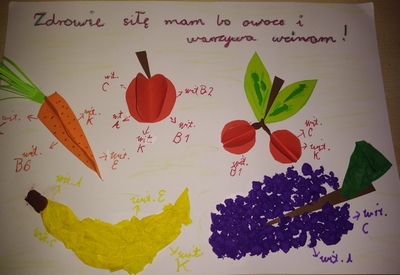 Zdrowie siłę mam bo owoce i
warzywa wcinam!
wit. C
wit B2
wit. A
wit. K
wit. B1
wit. K
wit. B6
wit. E
wit. C
wit. K
wit. B1
wit. E
wit. K
wit. C